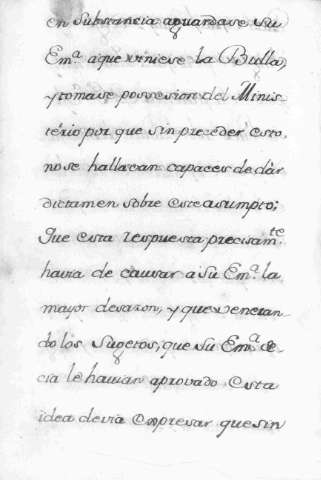 en substancia aguardase su
Em.ª a que viniese la Bulla,
y tomase possesion del Minis-
tério por que sin preceder esto,
no se hallavan capaces de dár
dictamen sobre este asumpto;
Que esta respuesta precisam.te
havia de causar a Su Em.ª la
mayor desazon, y que
do los Sugetos, que su Em.ª de-
cia le havian aprovado esta
idea devia expresar que sin